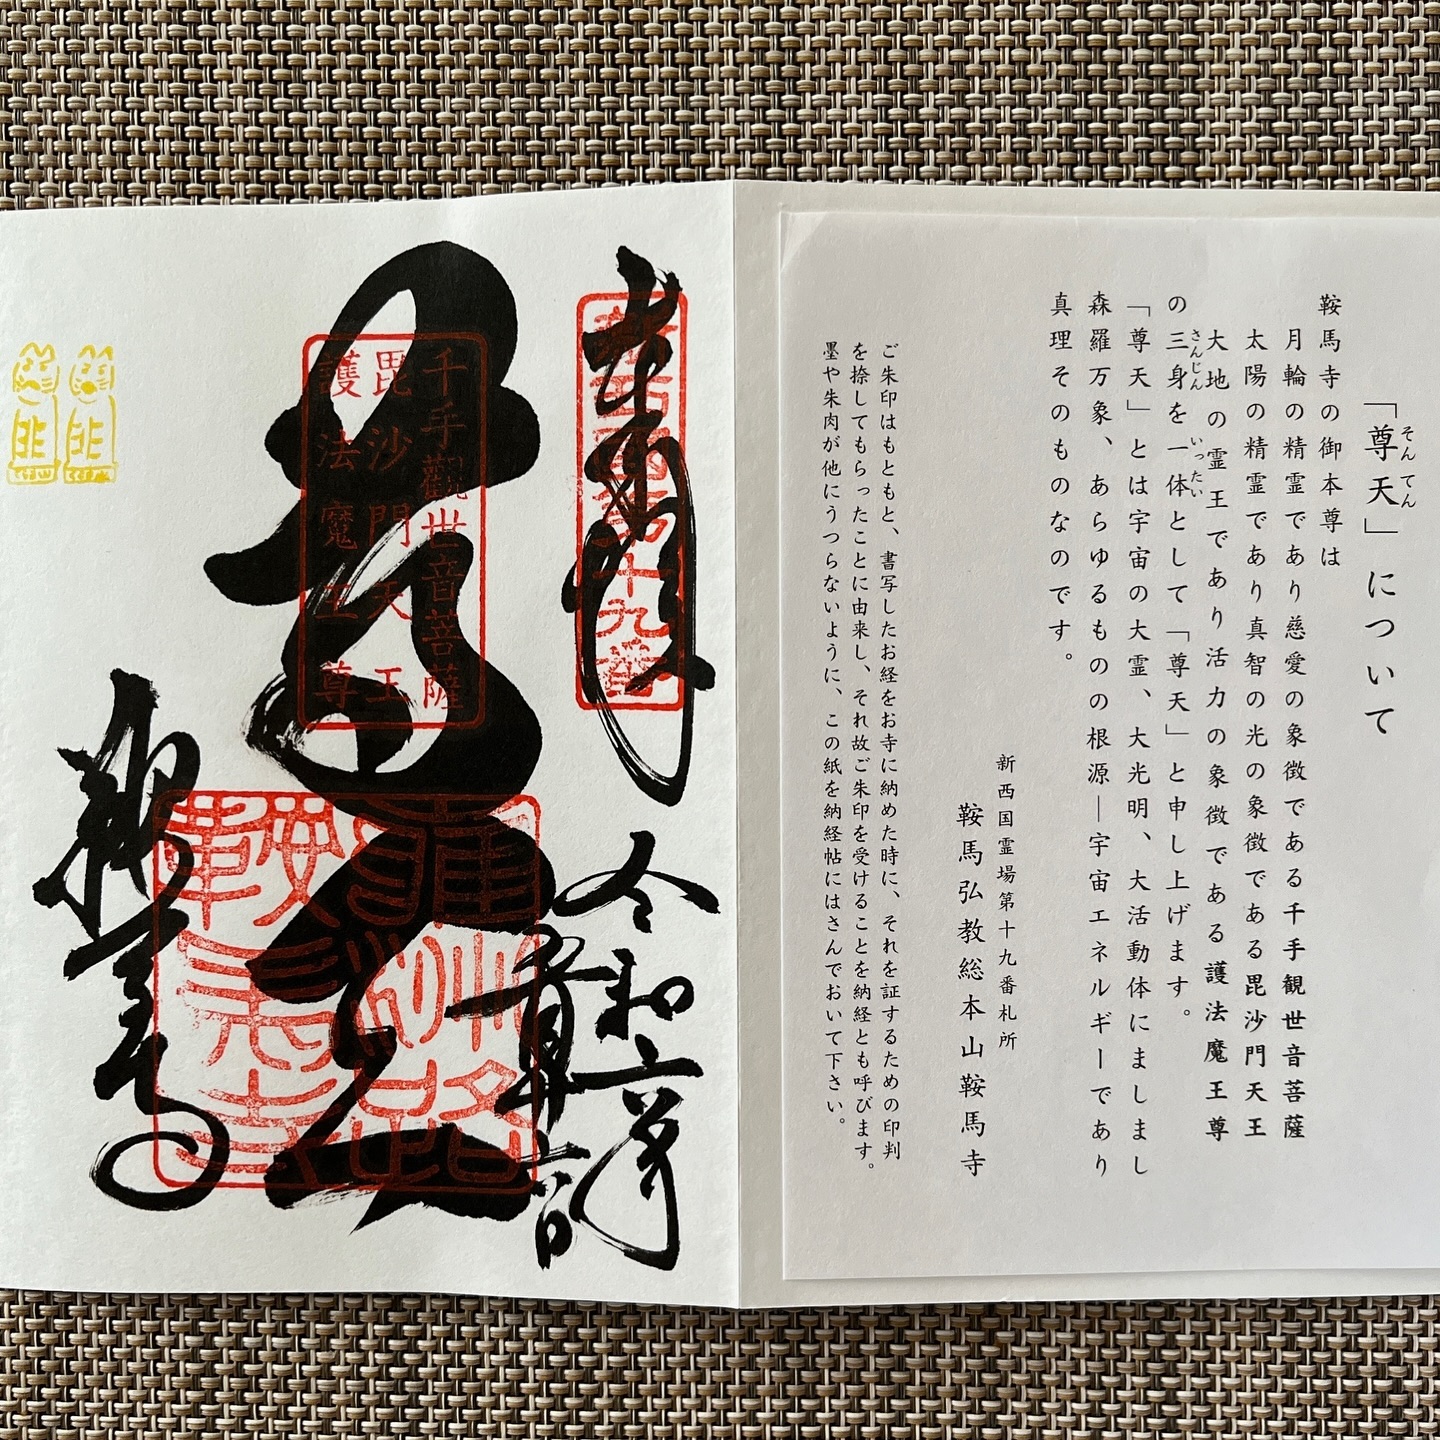 「尊天」について
そんてん
鞍馬寺の御本尊は
月輪の精霊であり慈愛の象徴である千手観世音菩薩
太陽の精霊であり真智の光の象徴である毘沙門天王
大地の霊王であり活力の象徴である護法魔王尊
の三身を一体として「尊天」と申し上げます。
さんじん
いったい
「尊天」とは宇宙の大霊、大光明、大活動体にましまし
森羅万象、あらゆるものの根源―宇宙エネルギーであり
真理そのものなのです。
新西国霊場第十九番札所
鞍馬弘教総本山鞍馬寺
ご朱印はもともと、書写したお経をお寺に納めた時に、それを証するための印判
を捺してもらったことに由来し、それ故ご朱印を受けることを納経とも呼びます。
墨や朱肉が他にうつらないように、この紙を納経帖にはさんでおいて下さい。
奉拝
新西國第十九番
令和六年
六日
千手觀世音菩薩
毘沙門天王
護法魔王尊
尊天
鞍馬寺